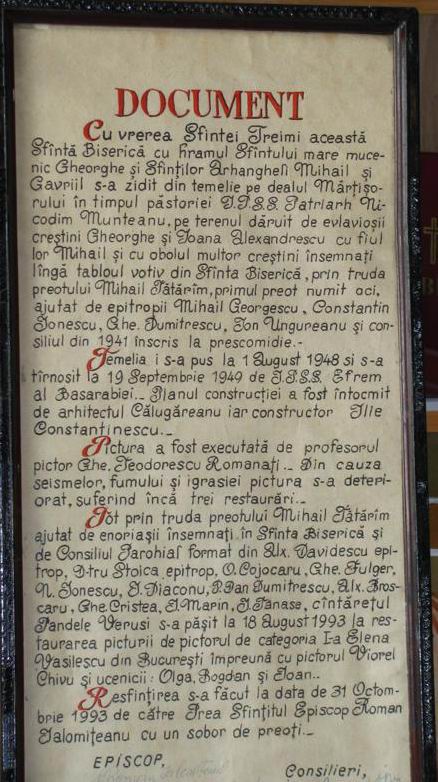 DOCUMENT
Cu vrerea Sfintei Treimi această
Sfîntă Biserică cu hramul Sfîntului mare muce-
nic Gheorghe și Sfinților Arhangheli Mihail și
Gavriil s-a zidit din temelie pe dealul Mărțișo-
rului în timpul păstoriei I.P.S.S. Patriarh Ni-
codim Munteanu, pe terenul dăruit de evlavioșii
creștini Gheorghe și Ioana Alexandrescu cu fiul
lor Mihail și cu obolul multor creștini însemnați
lîngă tabloul votiv din Sfînta Biserică, prin truda
preotului Mihail Tătărîm, primul preot numit aci,
ajutat de epitropii Mihail Georgescu, Constantin
Ionescu, Ghe. Dumitrescu, Ion Ungureanu și con-
siliul din 1941 înscris la prescomidie.-
Temelia i s-a pus la 1 August 1948 si s-a
tîrnosit la 19 Septembrie 1949 de I.P.S.S. Efrem
al Basarabiei._ Planul construcției a fost întocmit
de arhitectul Călugăreanu iar constructor Ilie
Constantinescu._
Pictura a fost executată de profesorul
pictor Ghe. Teodorescu Romanați._ Din cauza
seismelor, fumului și igrasiei pictura s-a deteri-
orat, suferind încă trei restaurări._
Tot prin truda preotului Mihail Tătărîm
ajutat de enoriașii însemnați în Sfînta Biserică și
de Consiliul Parohial format din Alx. Davidescu epi-
trop, D-tru Stoica epitrop, O. Cojocaru, Ghe. Fulger,
N. Ionescu, I. Diaconu, P. Dan Dumitrescu, Alx. Bros-
caru, Ghe. Cristea, I. Marin, G. Tănase, cîntărețul
Pandele Verusi s-a pășit la 18 August 1993 la res-
taurarea picturii de pictorul de categoria I-a Elena
Vasilescu din București împreună cu pictorul Viorel
Chivu și ucenicii: Olga, Bogdan și Ioan..
Resfințirea s-a făcut la data de 31 Octom-
brie 1993 de către Prea Sfințitul Episcop Roman
Ialomițeanu cu un sobor de preoți._
EPISCOP,
Consilieri,